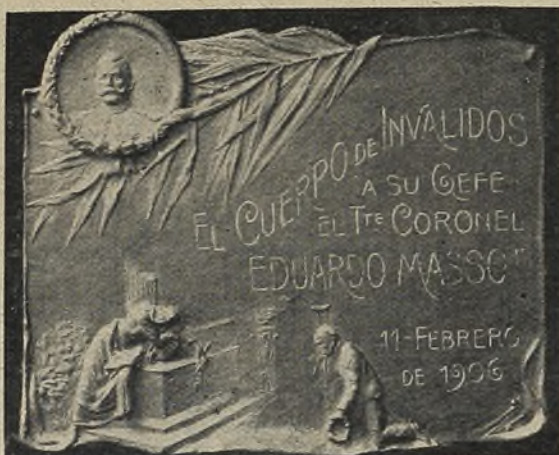 EL CUERPO DE INVÁLIDOS
A SU GEFE
EL Tte CORONEL
EDUARDO MASSOT
11-FEBRERO
DE 1906